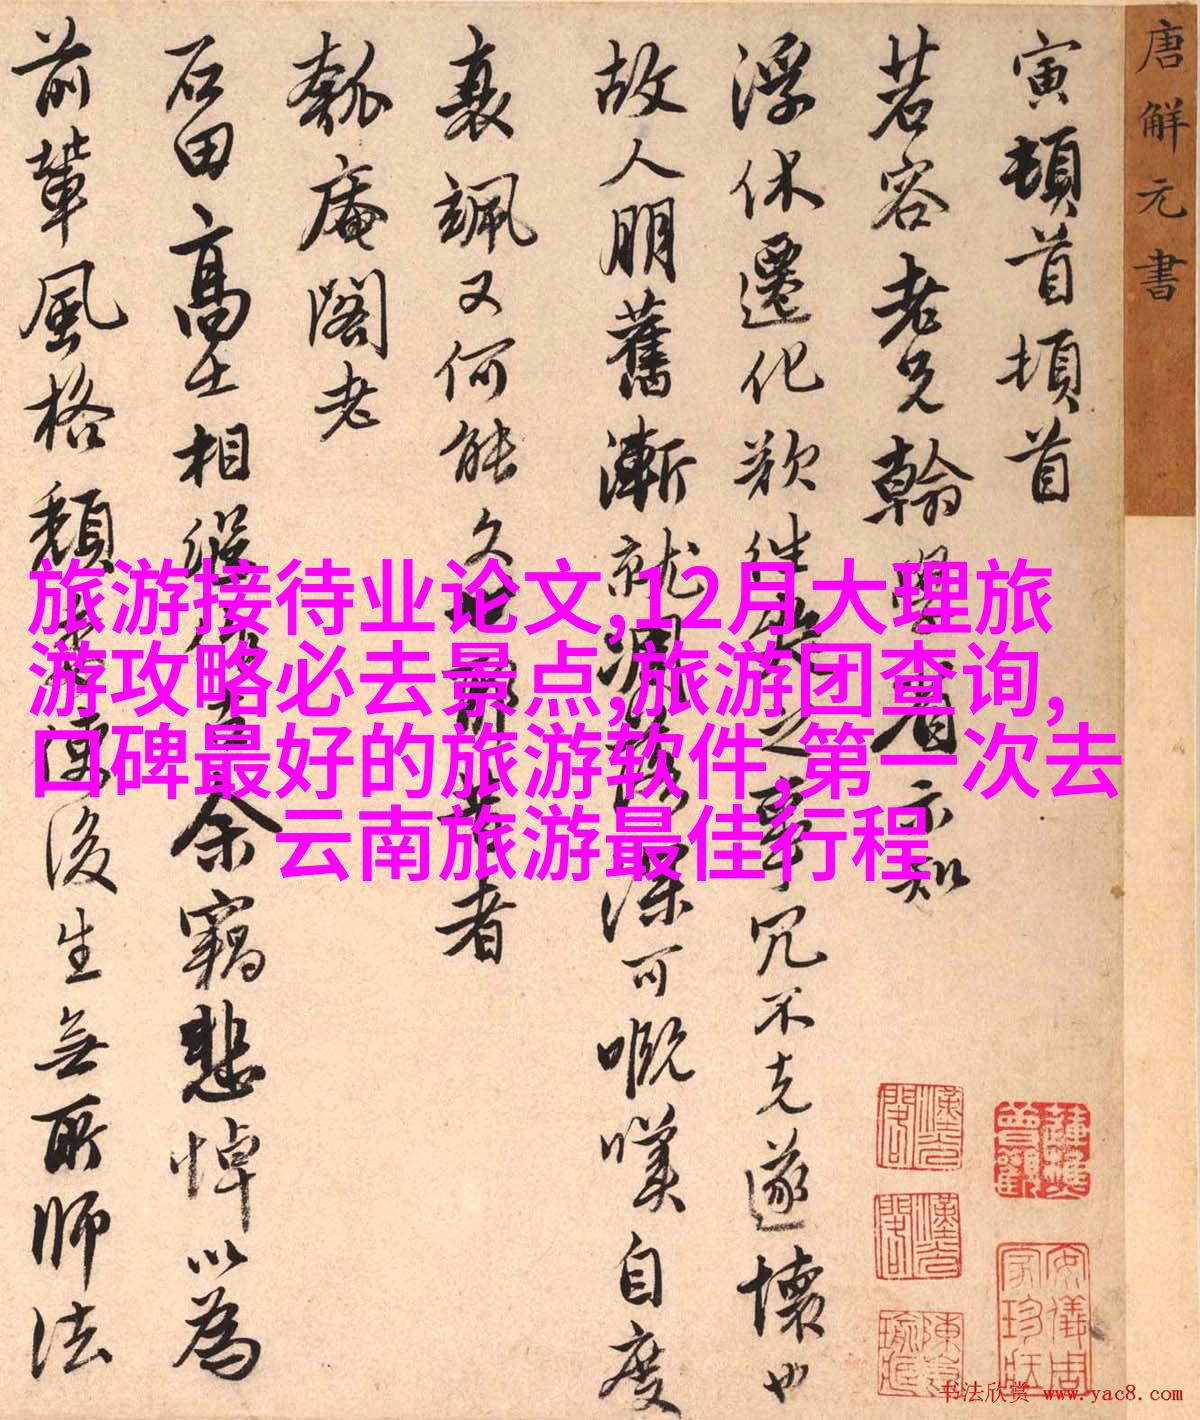 唐解元書
寅頓首頓首
茗容老兄翰
示知
浮休遷化欲往
之辜冗不克遂懷也
故人朋舊漸就凋
深可嘅嘆自度
衰颯又何能久
者
瓠庵閣老
石田高士相繼
余竊悲悼以為
前輩風格頹
後生無所師法
旅游接待业论文,12月大理旅
游攻略必去景点,旅游团查询,
口碑最好的旅游软件,第一次去
云南旅游最佳行程
书法欣赏 www.yac8.com